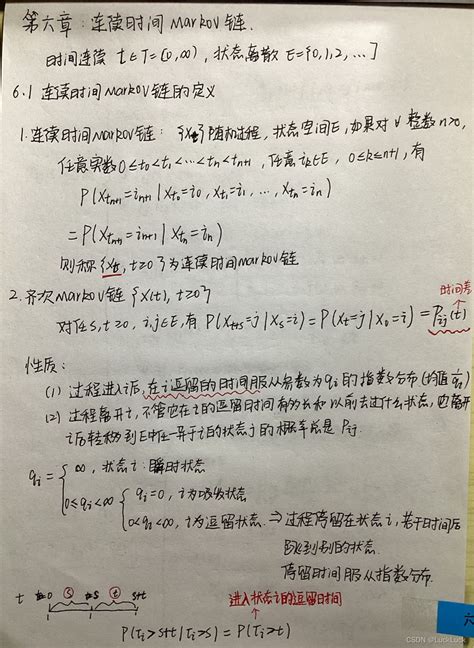 第六章：连续时间 Markov 链.
时间连续 t∈T=[0,∞)，状态离散 E={0,1,2,…}
6.1 连续时间Markov链的定义
1.连续时间Markov链：{Xt}随机过程，状态空间E，如果对∀整数n≥0，
任意实数0≤t₀<t₁<…<tₙ<tₙ₊₁，任意iₖ∈E，0≤k≤n+1，有
P(Xtₙ₊₁=iₙ₊₁|Xt₀=i₀, Xt₁=i₁, …, Xtₙ=iₙ)
=P(Xtₙ₊₁=iₙ₊₁|Xtₙ=iₙ)
则称{Xt, t≥0}为连续时间Markov链
2.齐次Markov链 {X(t), t≥0}
时间差
对任s,t≥0，i,j∈E,有 P(Xt+s=j|Xs=i)=P(Xt=j|X₀=i)=Pij(t)
性质：
(1) 过程进入i后,在i逗留的时间服从参数为qi的指数分布(均值1/qi)
(2) 过程离开i,不管它在i的逗留时间有多长和以前去过什么状态,它离开
i后转移到E中任一异于i的状态j的概率总是Pij.
qi= { ∞, 状态i：瞬时状态
0≤qi<∞ { qi=0, i为吸收状态
0<qi<∞, i为逗留状态 ⇒ 过程停留在状态i,若干时间后
跳到别的状态.
停留时间服从指数分布.
t 0 s s t s+t
进入状态i的逗留时间
P(Ti>s+t|Ti>s)=P(Ti>t)
CSDN @LuckLuck
六